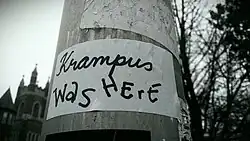 Krampus
WaS HERE